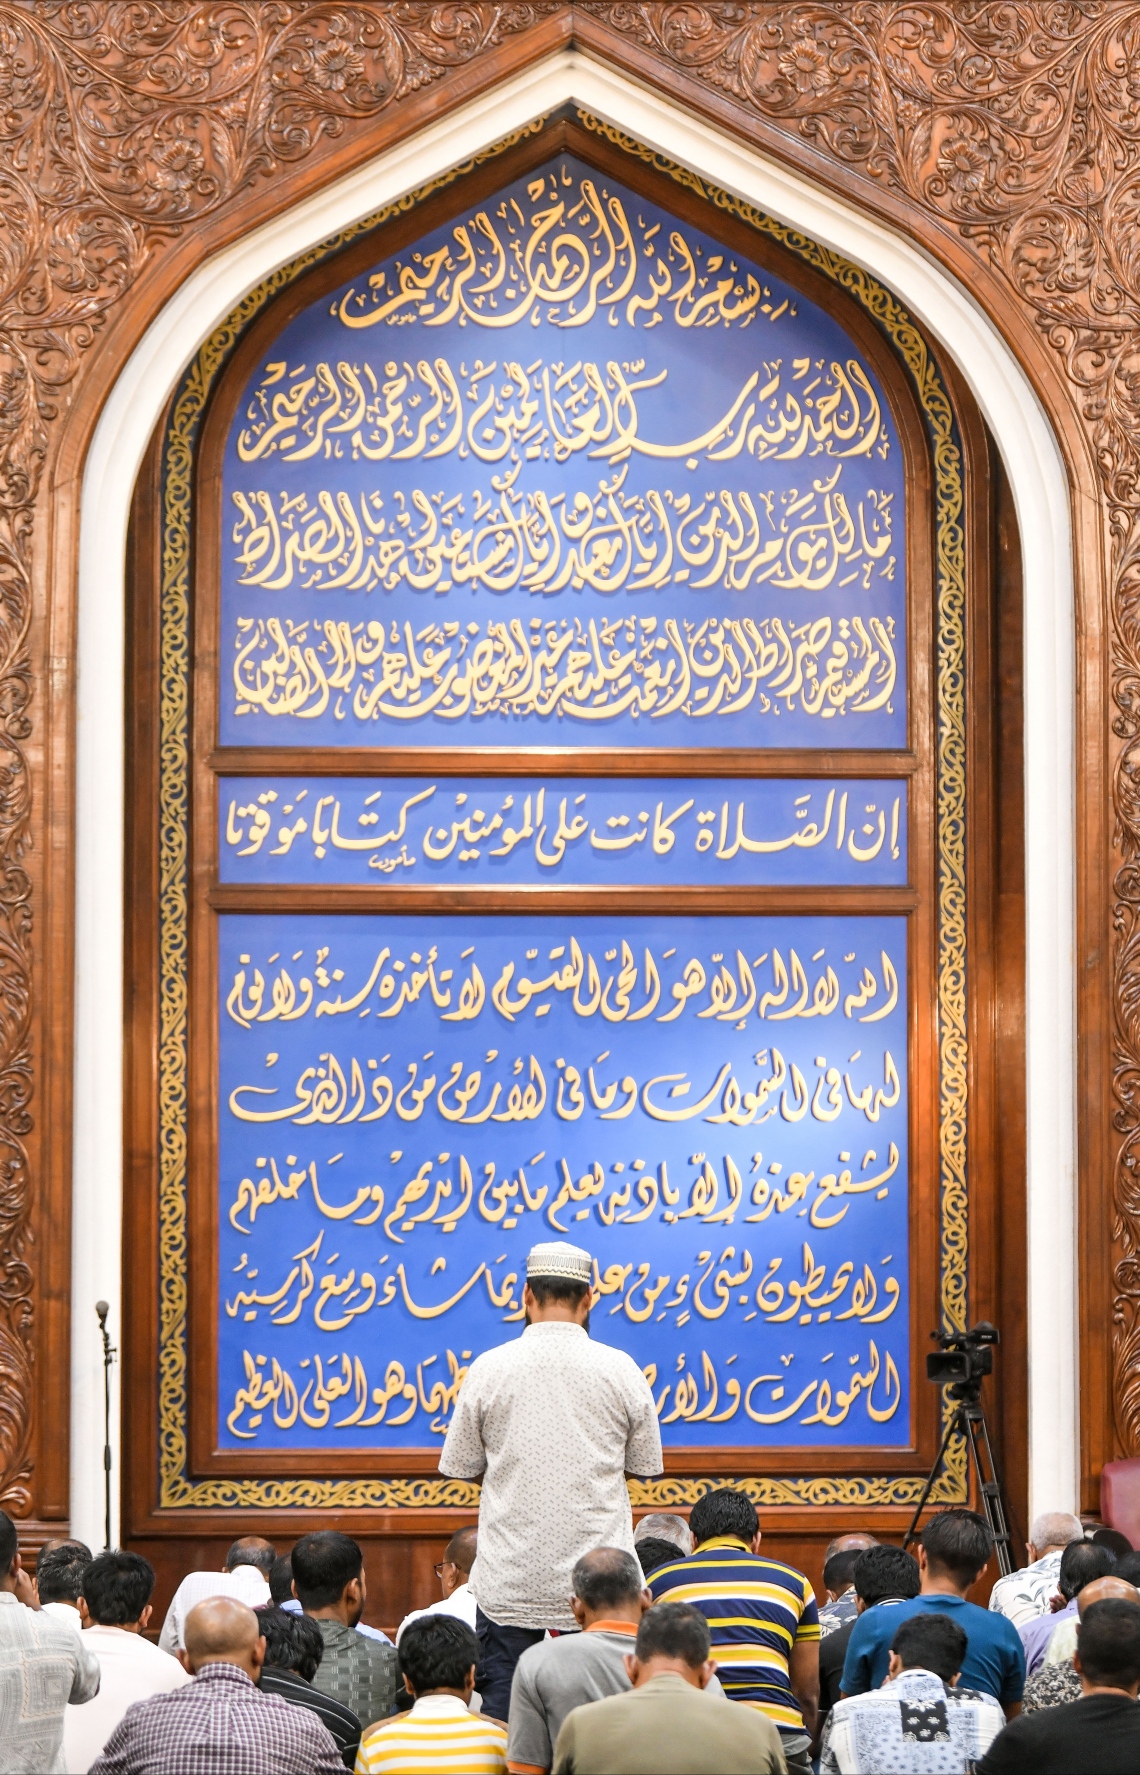 بسم الله الرحمن الرحيم
الحمد لله رب العالمين الرحمن الرحيم
مالك يوم الدين إياك نعبد وإياك نستعين اهدنا الصراط
المستقيم صراط الذين أنعمت عليهم غير المغضوب عليهم ولا الضالين
إنّ الصَّلاة كانت عَلى المؤمنيْن كتَابًا مَوْقوتا
الله لا اله إلاّ هوَ الحيّ القيّوم لاَ تأخذه سِنةٌ وَلاَ نوم
له مَا فى السَّموات ومَا فى الأرْض مَن ذَا الّذىْ
يشفع عِندهُ إلاّ باذنه يعلم مَا بين ايْديهِمْ ومَا خلفهم
وَلا يحيطون بشىْءٍ مِن بمَا شاءَ وَسِعَ كرْسِيّهُ
السّموَات وَالأرض وهو العَلىّ العظيم